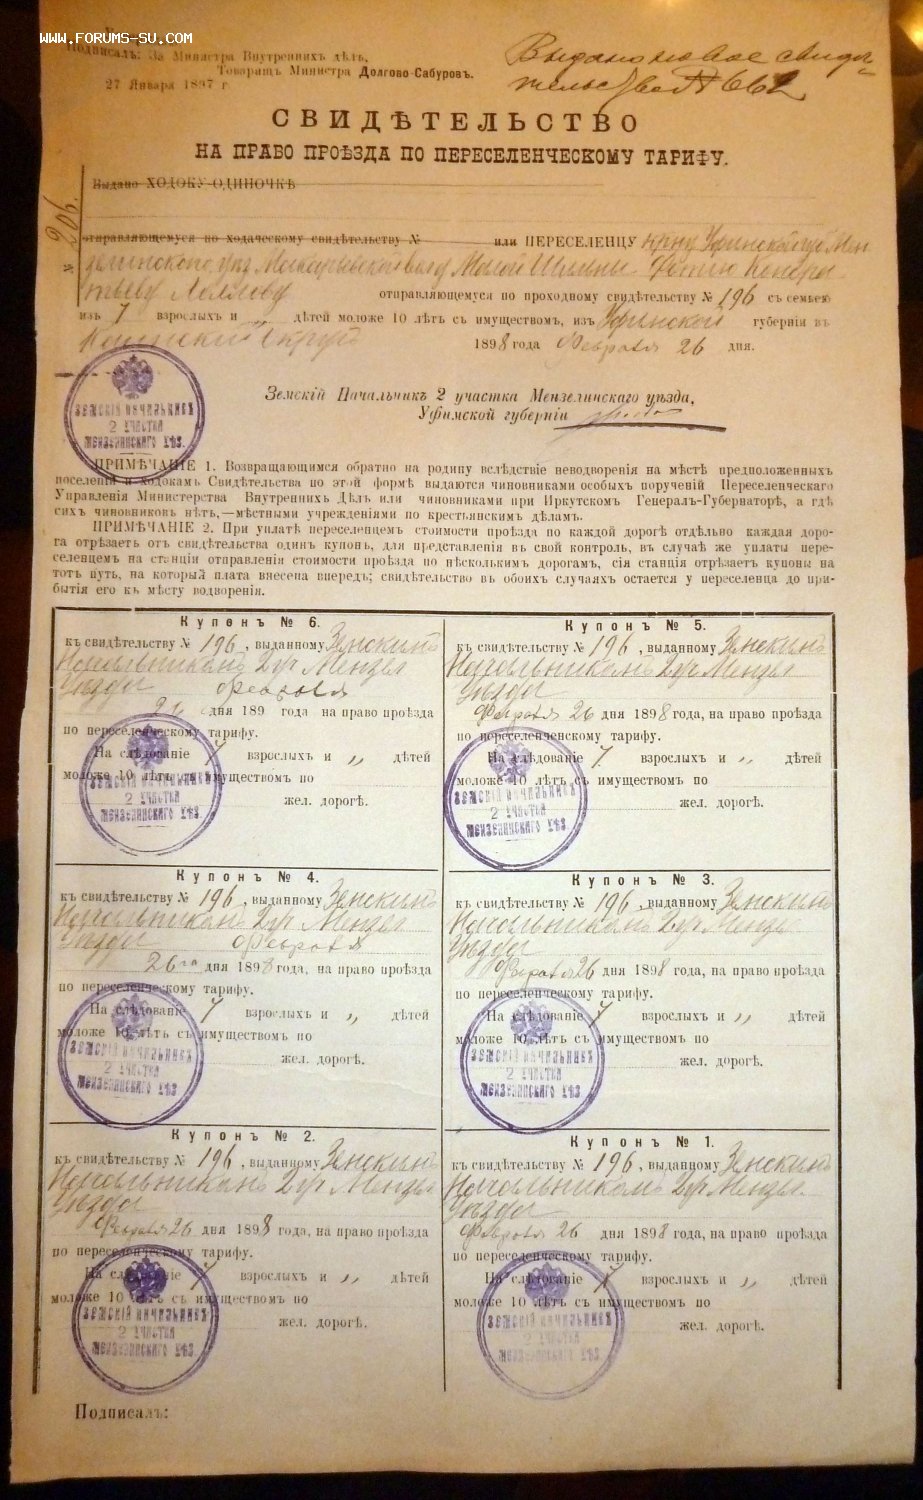 www.forums-su.com
Подписалъ: За Министра Внутреннихъ дѣлъ,
Товарищъ Министра Долгово-Сабуровъ.
27 Января 1897 г
Выдано новое свидѣ-
тельство № 662
СВИДѢТЕЛЬСТВО
НА ПРАВО ПРОѢЗДА ПО ПЕРЕСЕЛЕНЧЕСКОМУ ТАРИФУ.
Выдано ХОДОКУ-ОДИНОЧКѢ
№ 206.
отправляющемуся по ходаческому свидѣтельству № или ПЕРЕСЕЛЕНЦУ крну Уфинской губ Мен
зелинскаго уѣз
отправляющемуся по проходному свидѣтельству № 196 съ семьею
изъ 7 взрослыхъ и „ дѣтей моложе 10 лѣтъ съ имуществомъ, изъ Уфинской губерніи въ
округъ 1898 года Февраля 26 дня.
Земскій Начальникъ 2 участка Мензелинскаго уѣзда,
Уфимской губерніи
ЗЕМСКІЙ НАЧАЛЬНИКЪ
2 УЧАСТКА
МЕНЗЕЛИНСКАГО УѢЗ.
ПРИМѢЧАНІЕ 1. Возвращающимся обратно на родину вслѣдствіе неводворенія на мѣстѣ предположенныхъ
поселеній и ходокамъ Свидѣтельства по этой формѣ выдаются чиновниками особыхъ порученій Переселенческаго
Управленія Министерства Внутреннихъ Дѣлъ или чиновниками при Иркутскомъ Генералъ-Губернаторѣ, а гдѣ
сихъ чиновниковъ нѣтъ,—мѣстными учрежденіями по крестьянскимъ дѣламъ.
ПРИМѢЧАНІЕ 2. При уплатѣ переселенцемъ стоимости проѣзда по каждой дорогѣ отдѣльно каждая доро-
га отрѣзаетъ отъ свидѣтельства одинъ купонъ, для представленія въ свой контроль, въ случаѣ же уплаты пере-
селенцемъ на станціи отправленія стоимости проѣзда по нѣсколькимъ дорогамъ, сія станція отрѣзаетъ купоны на
тотъ путь, на который плата внесена впередъ; свидѣтельство въ обоихъ случаяхъ остается у переселенца до при-
бытія его къ мѣсту водворенія.
Купонъ № 6.
къ свидѣтельству № 196, выданному Земскимъ
Начальникомъ 2 уч Мензел
Уѣзда Февраля
26 дня 189 года на право проѣзда
по переселенческому тарифу.
На слѣдованіе 7 взрослыхъ и „ дѣтей
моложе 10 лѣтъ съ имуществомъ по
жел. дорогѣ.
ЗЕМСКІЙ НАЧАЛЬНИКЪ
2 УЧАСТКА
МЕНЗЕЛИНСКАГО УѢЗ.
Купонъ № 5.
къ свидѣтельству № 196, выданному Земскимъ
Начальникомъ 2 уч Мензел
Уѣзда
Февраля 26 дня 1898 года, на право проѣзда
по переселенческому тарифу.
На слѣдованіе 7 взрослыхъ и „ дѣтей
моложе 10 лѣтъ съ имуществомъ по
жел. дорогѣ.
ЗЕМСКІЙ НАЧАЛЬНИКЪ
2 УЧАСТКА
МЕНЗЕЛИНСКАГО УѢЗ.
Купонъ № 4.
къ свидѣтельству № 196, выданному Земскимъ
Начальникомъ 2 уч Мензел
Уѣзда Февраля
26го дня 1898 года, на право проѣзда
по переселенческому тарифу.
На слѣдованіе 7 взрослыхъ и „ дѣтей
моложе 10 лѣтъ съ имуществомъ по
жел. дорогѣ.
ЗЕМСКІЙ НАЧАЛЬНИКЪ
2 УЧАСТКА
МЕНЗЕЛИНСКАГО УѢЗ.
Купонъ № 3.
къ свидѣтельству № 196, выданному Земскимъ
Начальникомъ 2 уч Мензе
Уѣзда
Февраля 26 дня 1898 года, на право проѣзда
по переселенческому тарифу.
На слѣдованіе 7 взрослыхъ и „ дѣтей
моложе 10 лѣтъ съ имуществомъ по
жел. дорогѣ.
ЗЕМСКІЙ НАЧАЛЬНИКЪ
2 УЧАСТКА
МЕНЗЕЛИНСКАГО УѢЗ.
Купонъ № 2.
къ свидѣтельству № 196, выданному Земскимъ
Начальникомъ 2 уч Мензел
Уѣзда
Февраля 26 дня 1898 года, на право проѣзда
по переселенческому тарифу.
На слѣдованіе 7 взрослыхъ и „ дѣтей
моложе 10 лѣтъ съ имуществомъ по
жел. дорогѣ.
ЗЕМСКІЙ НАЧАЛЬНИКЪ
2 УЧАСТКА
МЕНЗЕЛИНСКАГО УѢЗ.
Купонъ № 1.
къ свидѣтельству № 196, выданному Земскимъ
Начальникомъ 2 уч Мензел.
Уѣзда
Февраля 26 дня 1898 года, на право проѣзда
по переселенческому тарифу.
На слѣдованіе 7 взрослыхъ и „ дѣтей
моложе 10 лѣтъ съ имуществомъ по
жел. дорогѣ.
ЗЕМСКІЙ НАЧАЛЬНИКЪ
2 УЧАСТКА
МЕНЗЕЛИНСКАГО УѢЗ.
Подписалъ: